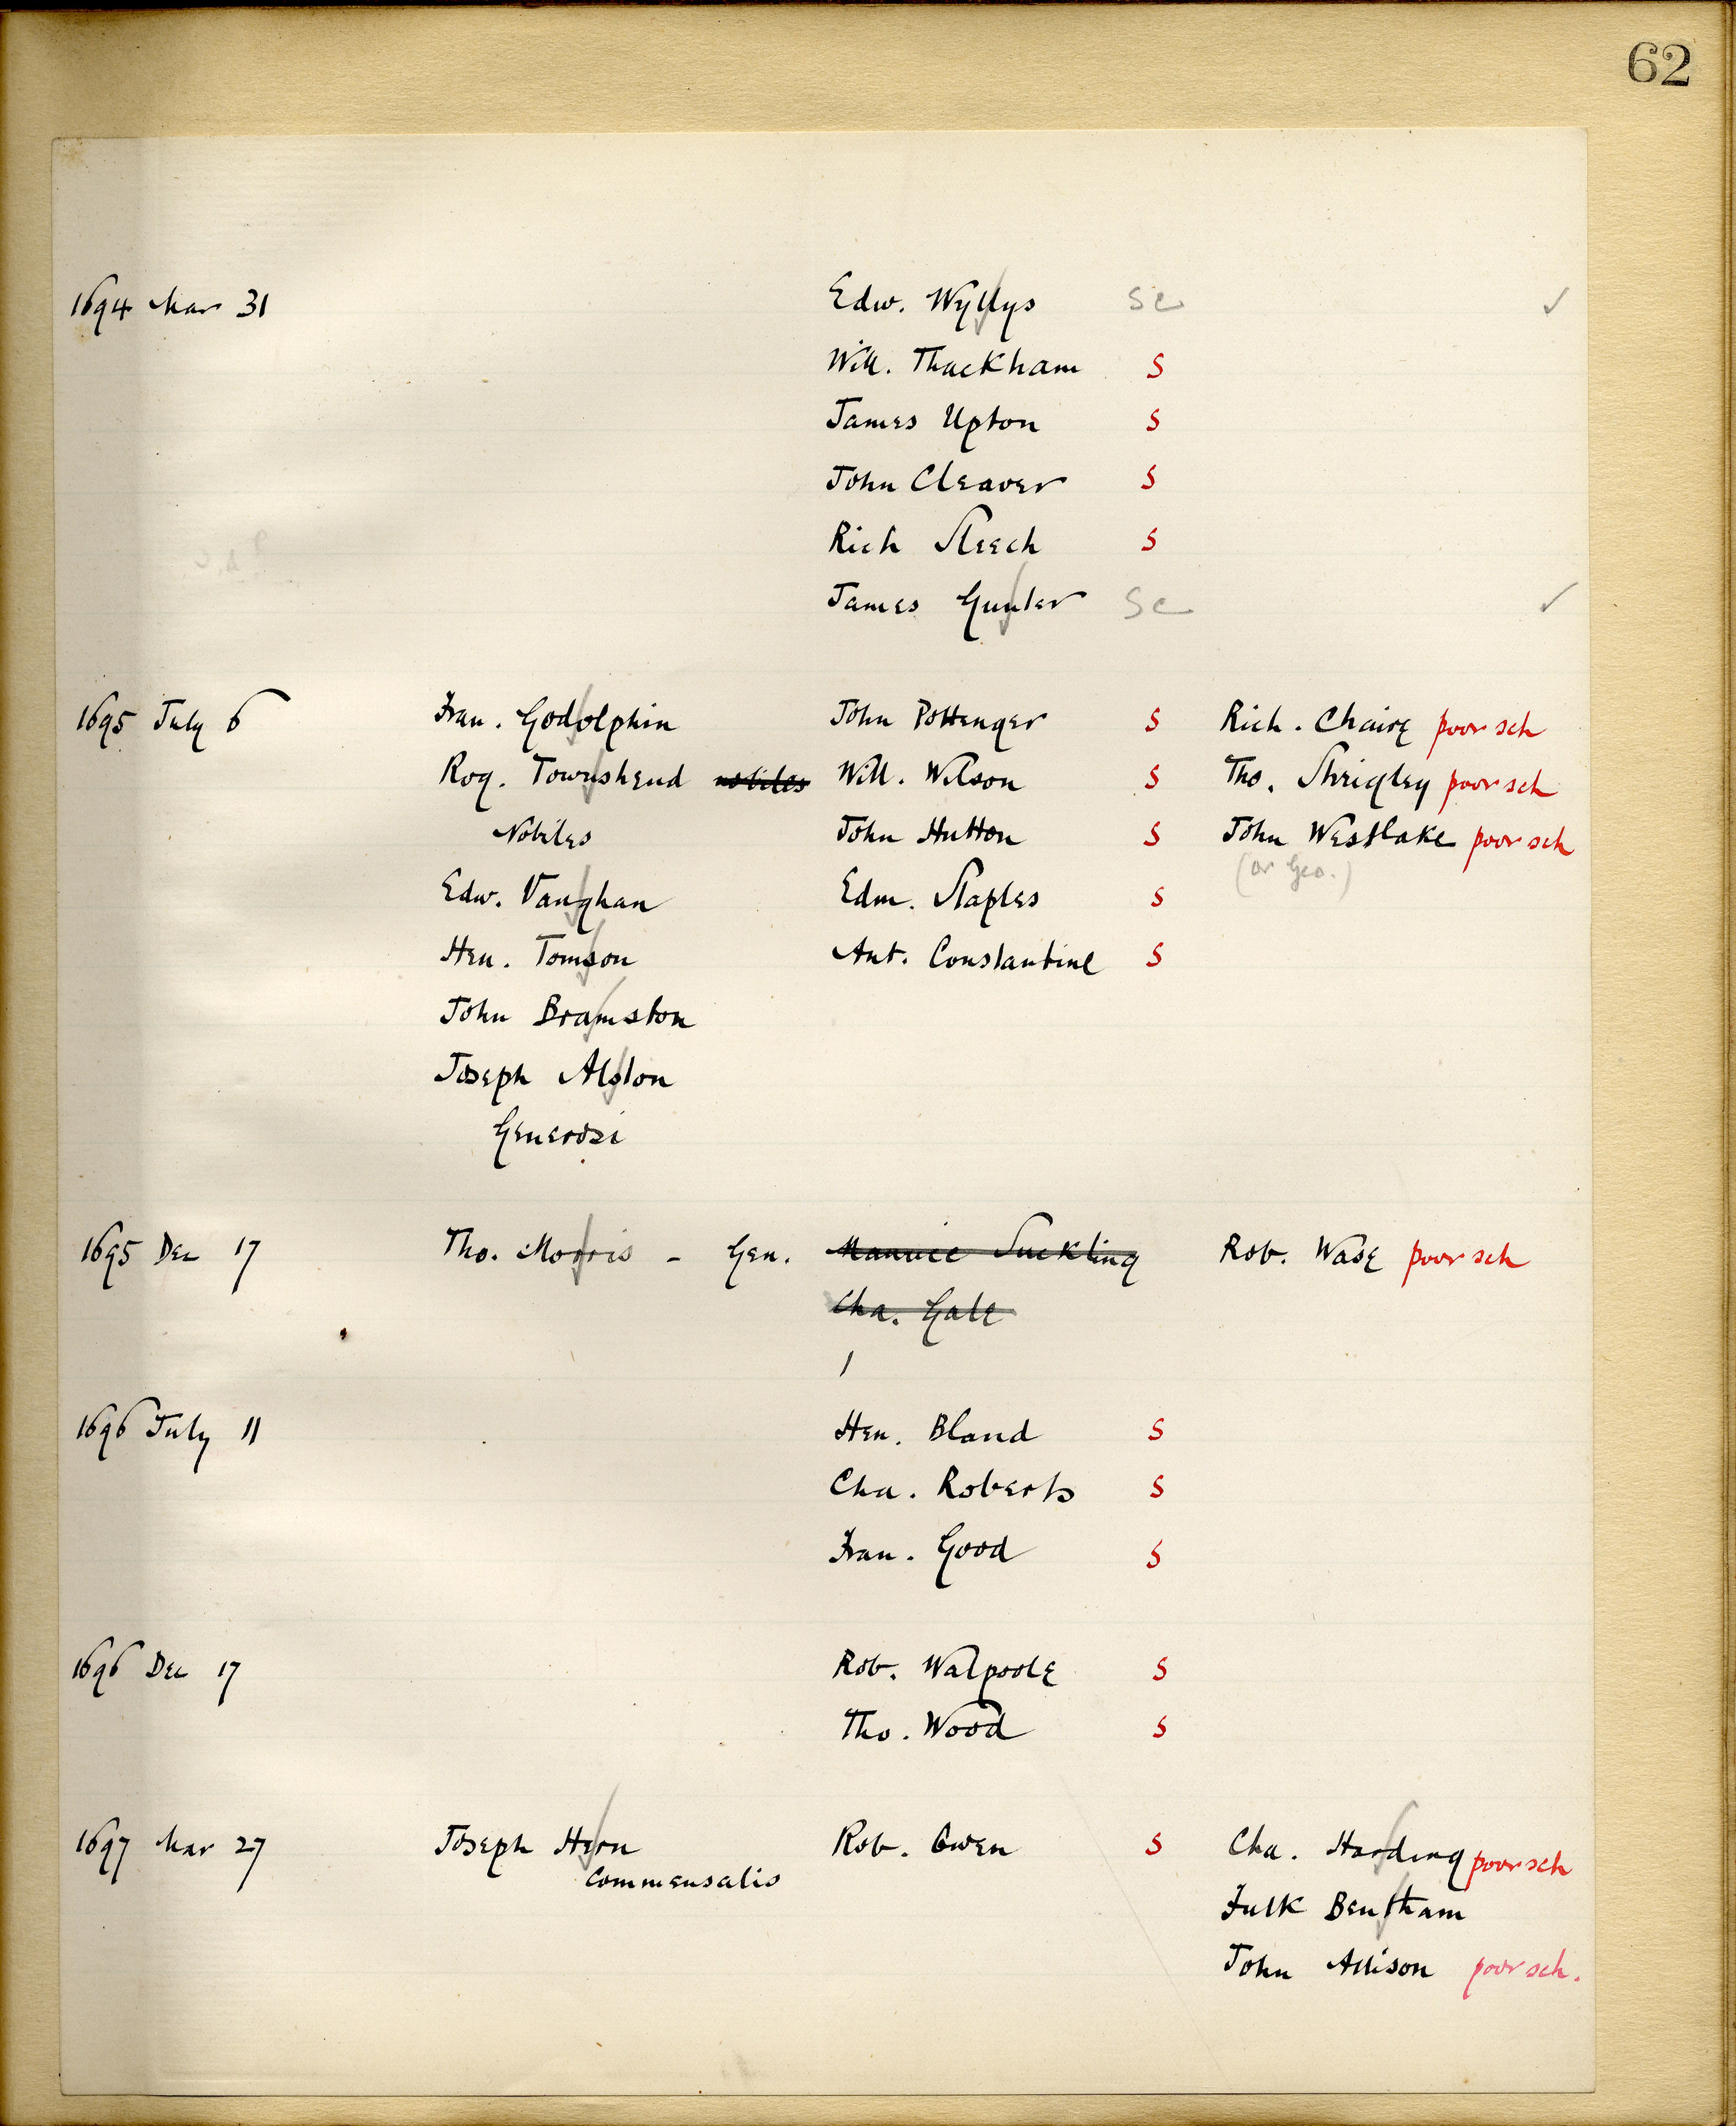 62
1694 Mar 31 Edw. Wyllys Sc ✓
Will. Thackham S
James Upton S
John Cleaver S
Rich Sleech S
James Gunter Sc ✓
1695 July 6 Fran. Godolphin John Pottenger S Rich. Chaire poor sch
Rog. Townshend nobiles Will. Wilson S Tho. Shrigley poor sch
Nobiles John Hutton S John Westlake poor sch
(or Geo.)
Edw. Vaughan Edm. Staples S
Hen. Tomson Ant. Constantine S
John Bramston
Joseph Alston
Generosi
1695 Dec 17 Tho. Morris - Gen. Maurice Suckling Rob. Wase poor sch
Cha. Gale
1696 July 11 Hen. Bland S
Cha. Roberts S
Fran. Good S
1696 Dec 17 Rob. Walpoole S
Tho. Wood S
1697 Mar 27 Joseph Hern Rob. Owen S Cha. Harding poor sch
Commensalis
Fulk Bentham
John Allison poor sch.